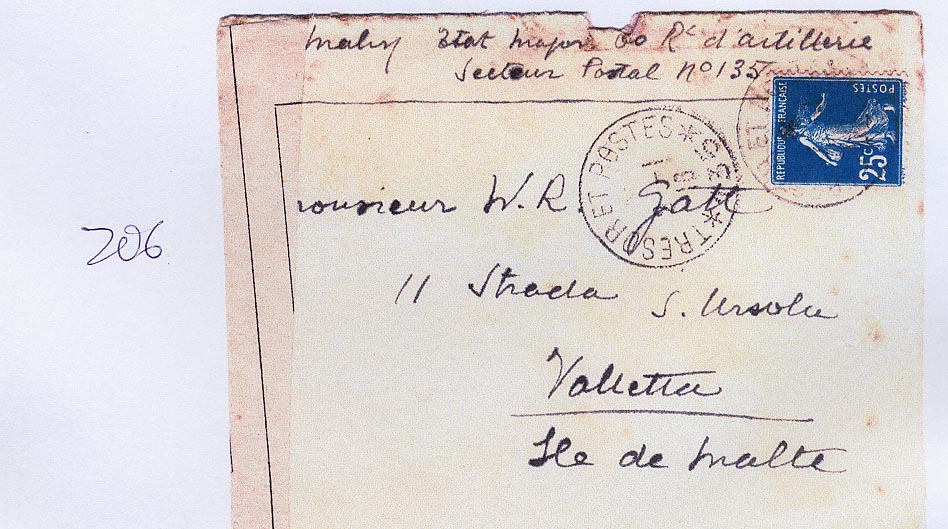 Etat major 60 Rt d'artillerie
Secteur Postal No 135
REPUBLIQUE FRANÇAISE
POSTES
25c
TRESOR ET POSTES
monsieur W.R. Gatt
206
11 Strada S. Ursola
Valletta
Ile de Malte